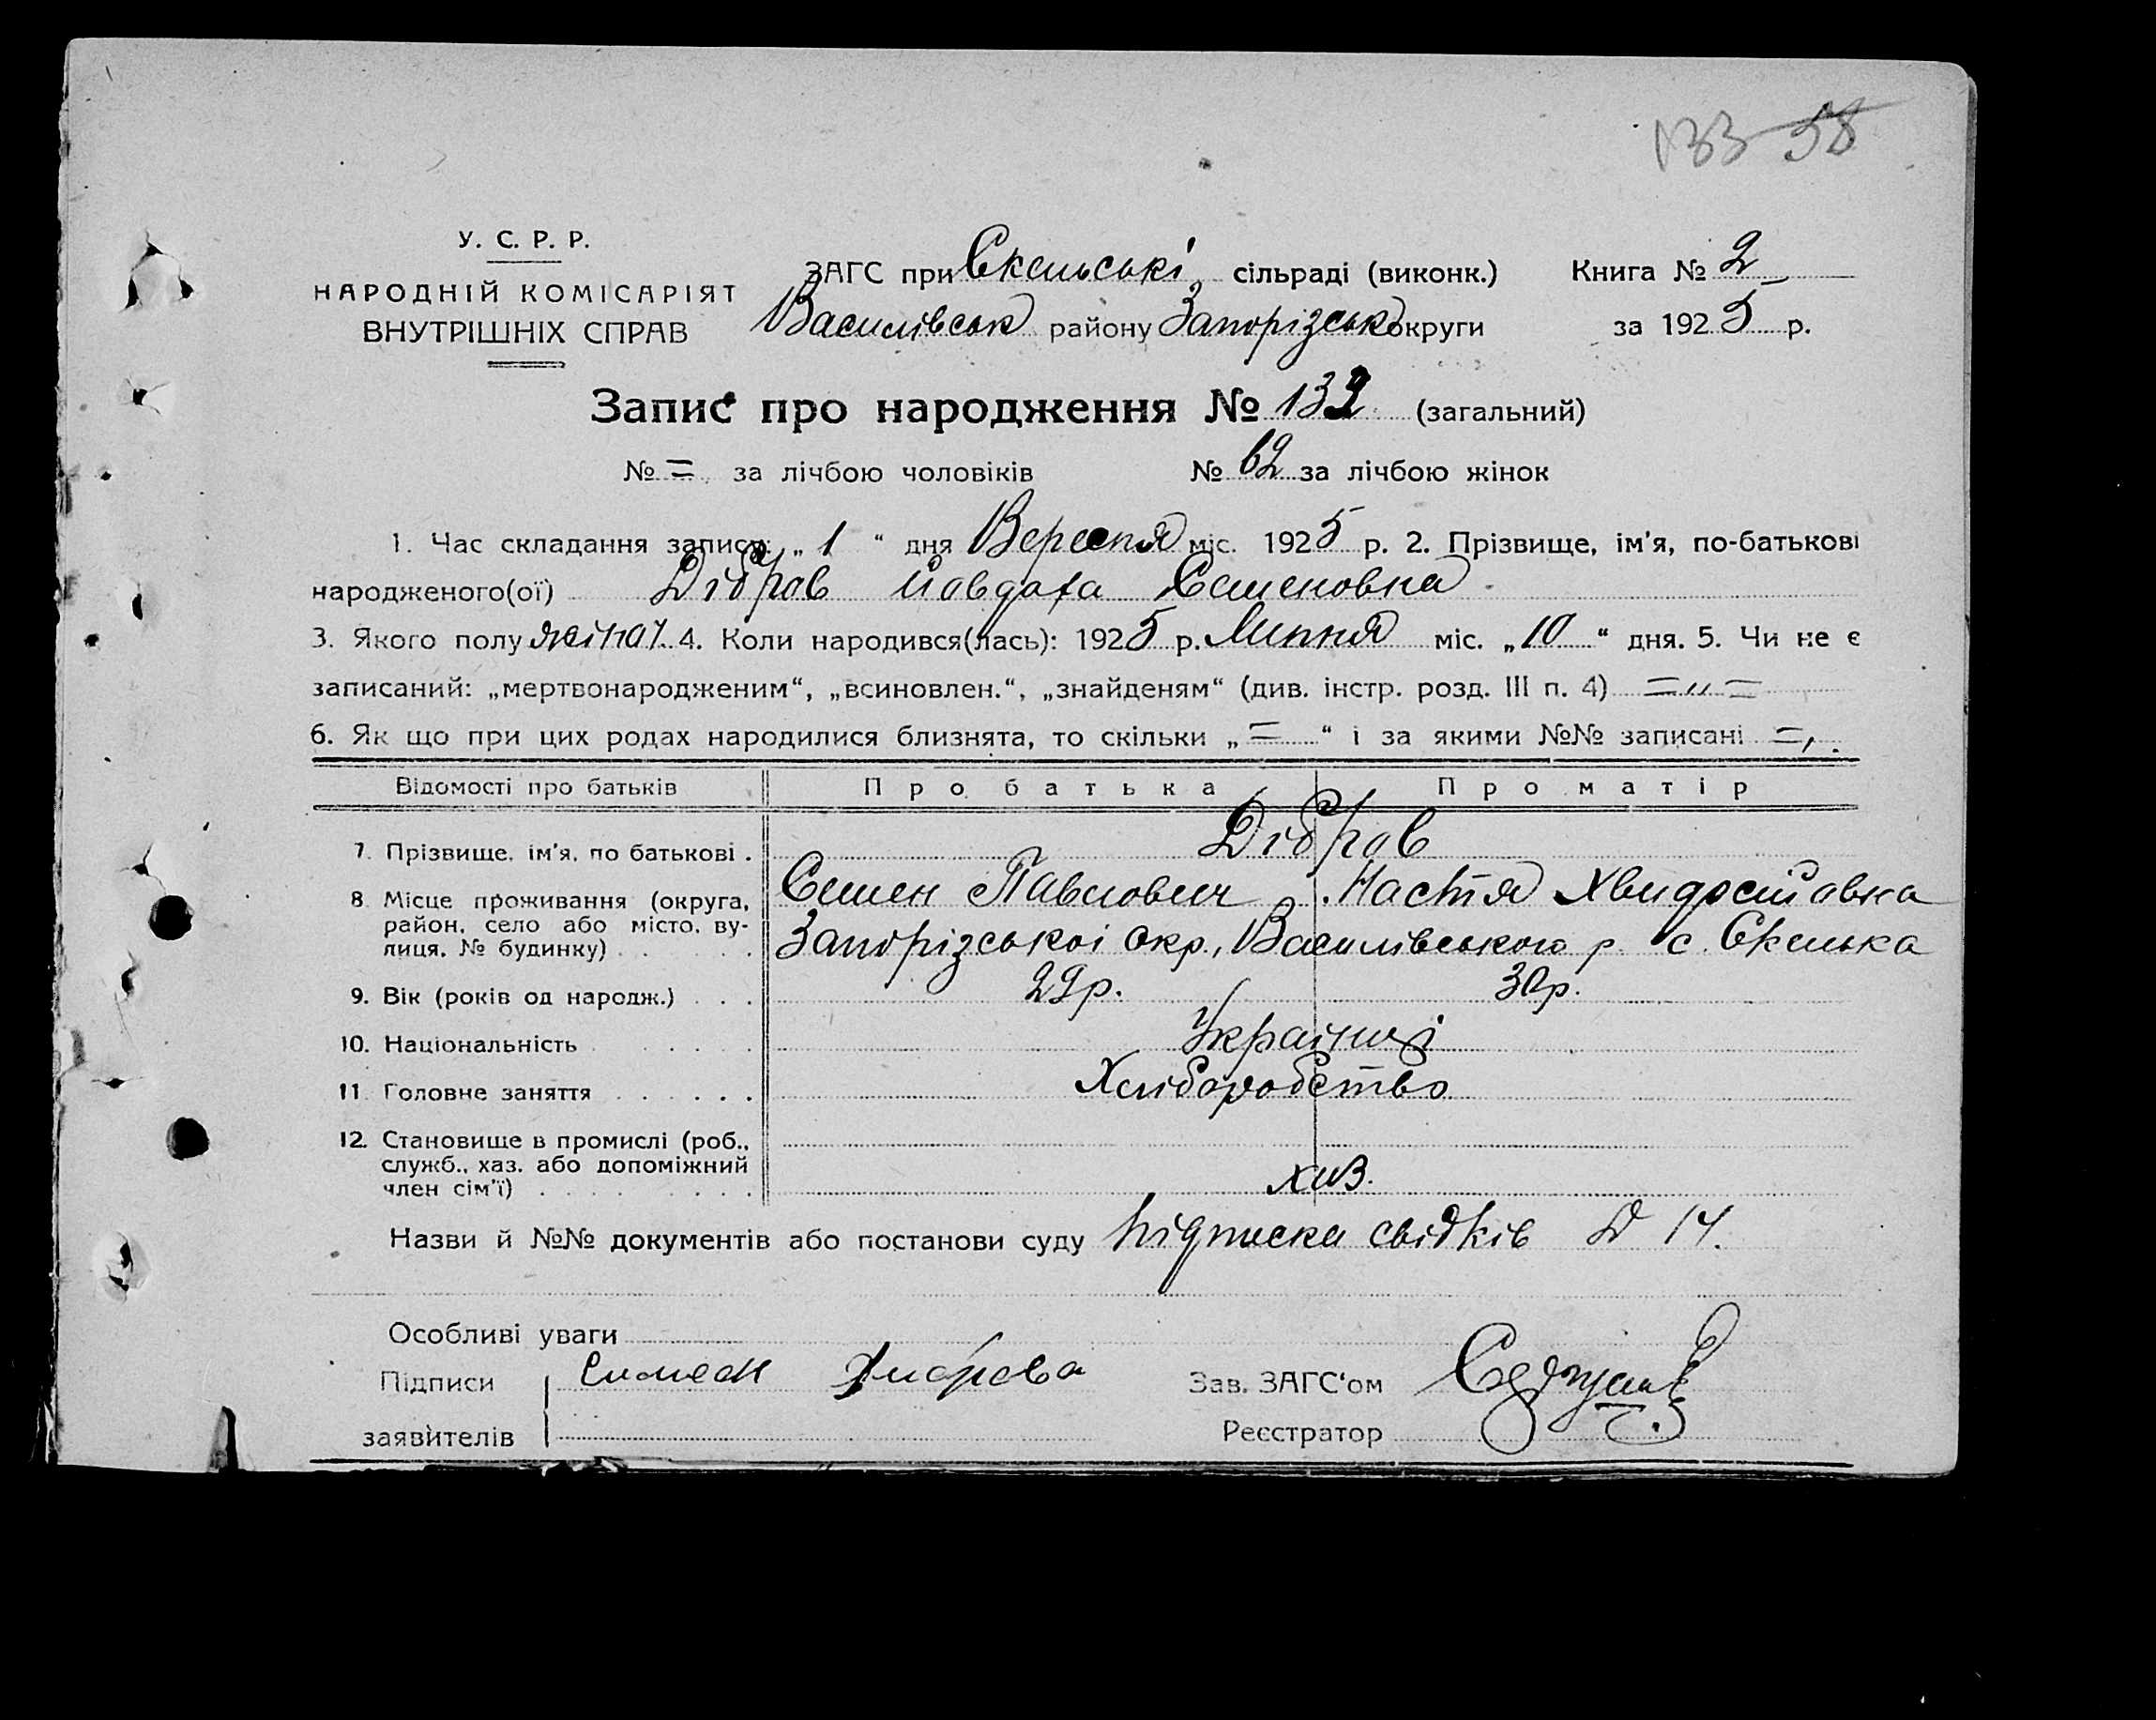 133 58
У. С. Р. Р.
НАРОДНІЙ КОМІСАРІЯТ
ВНУТРІШНІХ СПРАВ
ЗАГС при Скельські сільраді (виконк.) Книга № 2
Василівськ району Запорізськ округи за 1925 р.
Запис про народження № 132 (загальний)
№ = за лічбою чоловіків № 62 за лічбою жінок
1. Час складання запису: „ 1 “ дня Вересня міс. 1925 р. 2. Прізвище, ім'я, по-батькові
народженого(ої) Дібров Йовдоха Семеновна
3. Якого полу жіноч. 4. Коли народився(лась): 1925 р. Липня міс. „ 10 “ дня. 5. Чи не є
записаний: „мертвонародженим“, „всиновлен.“, „знайденям“ (див. інстр. розд. III п. 4) = „ =
6. Як що при цих родах народилися близнята, то скільки „ = “ і за якими №№ записані =
Відомості про батьків Про батька Про матір
7. Прізвище, ім'я, по батькові . Дібров
Семен Павлович Настя
8. Місце проживання (округа,
район, село або місто, ву-
лиця, № будинку) Запорізської окр., Василівського р. с. Скелька
9. Вік (років од народж.) 29р. 30р.
10. Національність Українці
11. Головне заняття Хліборобство
12. Становище в промислі (роб.,
служб., хаз. або допоміжний
член сім'ї)
Назви й №№ документів або постанови суду підписка свідків Д 14.
Особливі уваги
Підписи Зав. ЗАГС'ом
заявителів Реєстратор